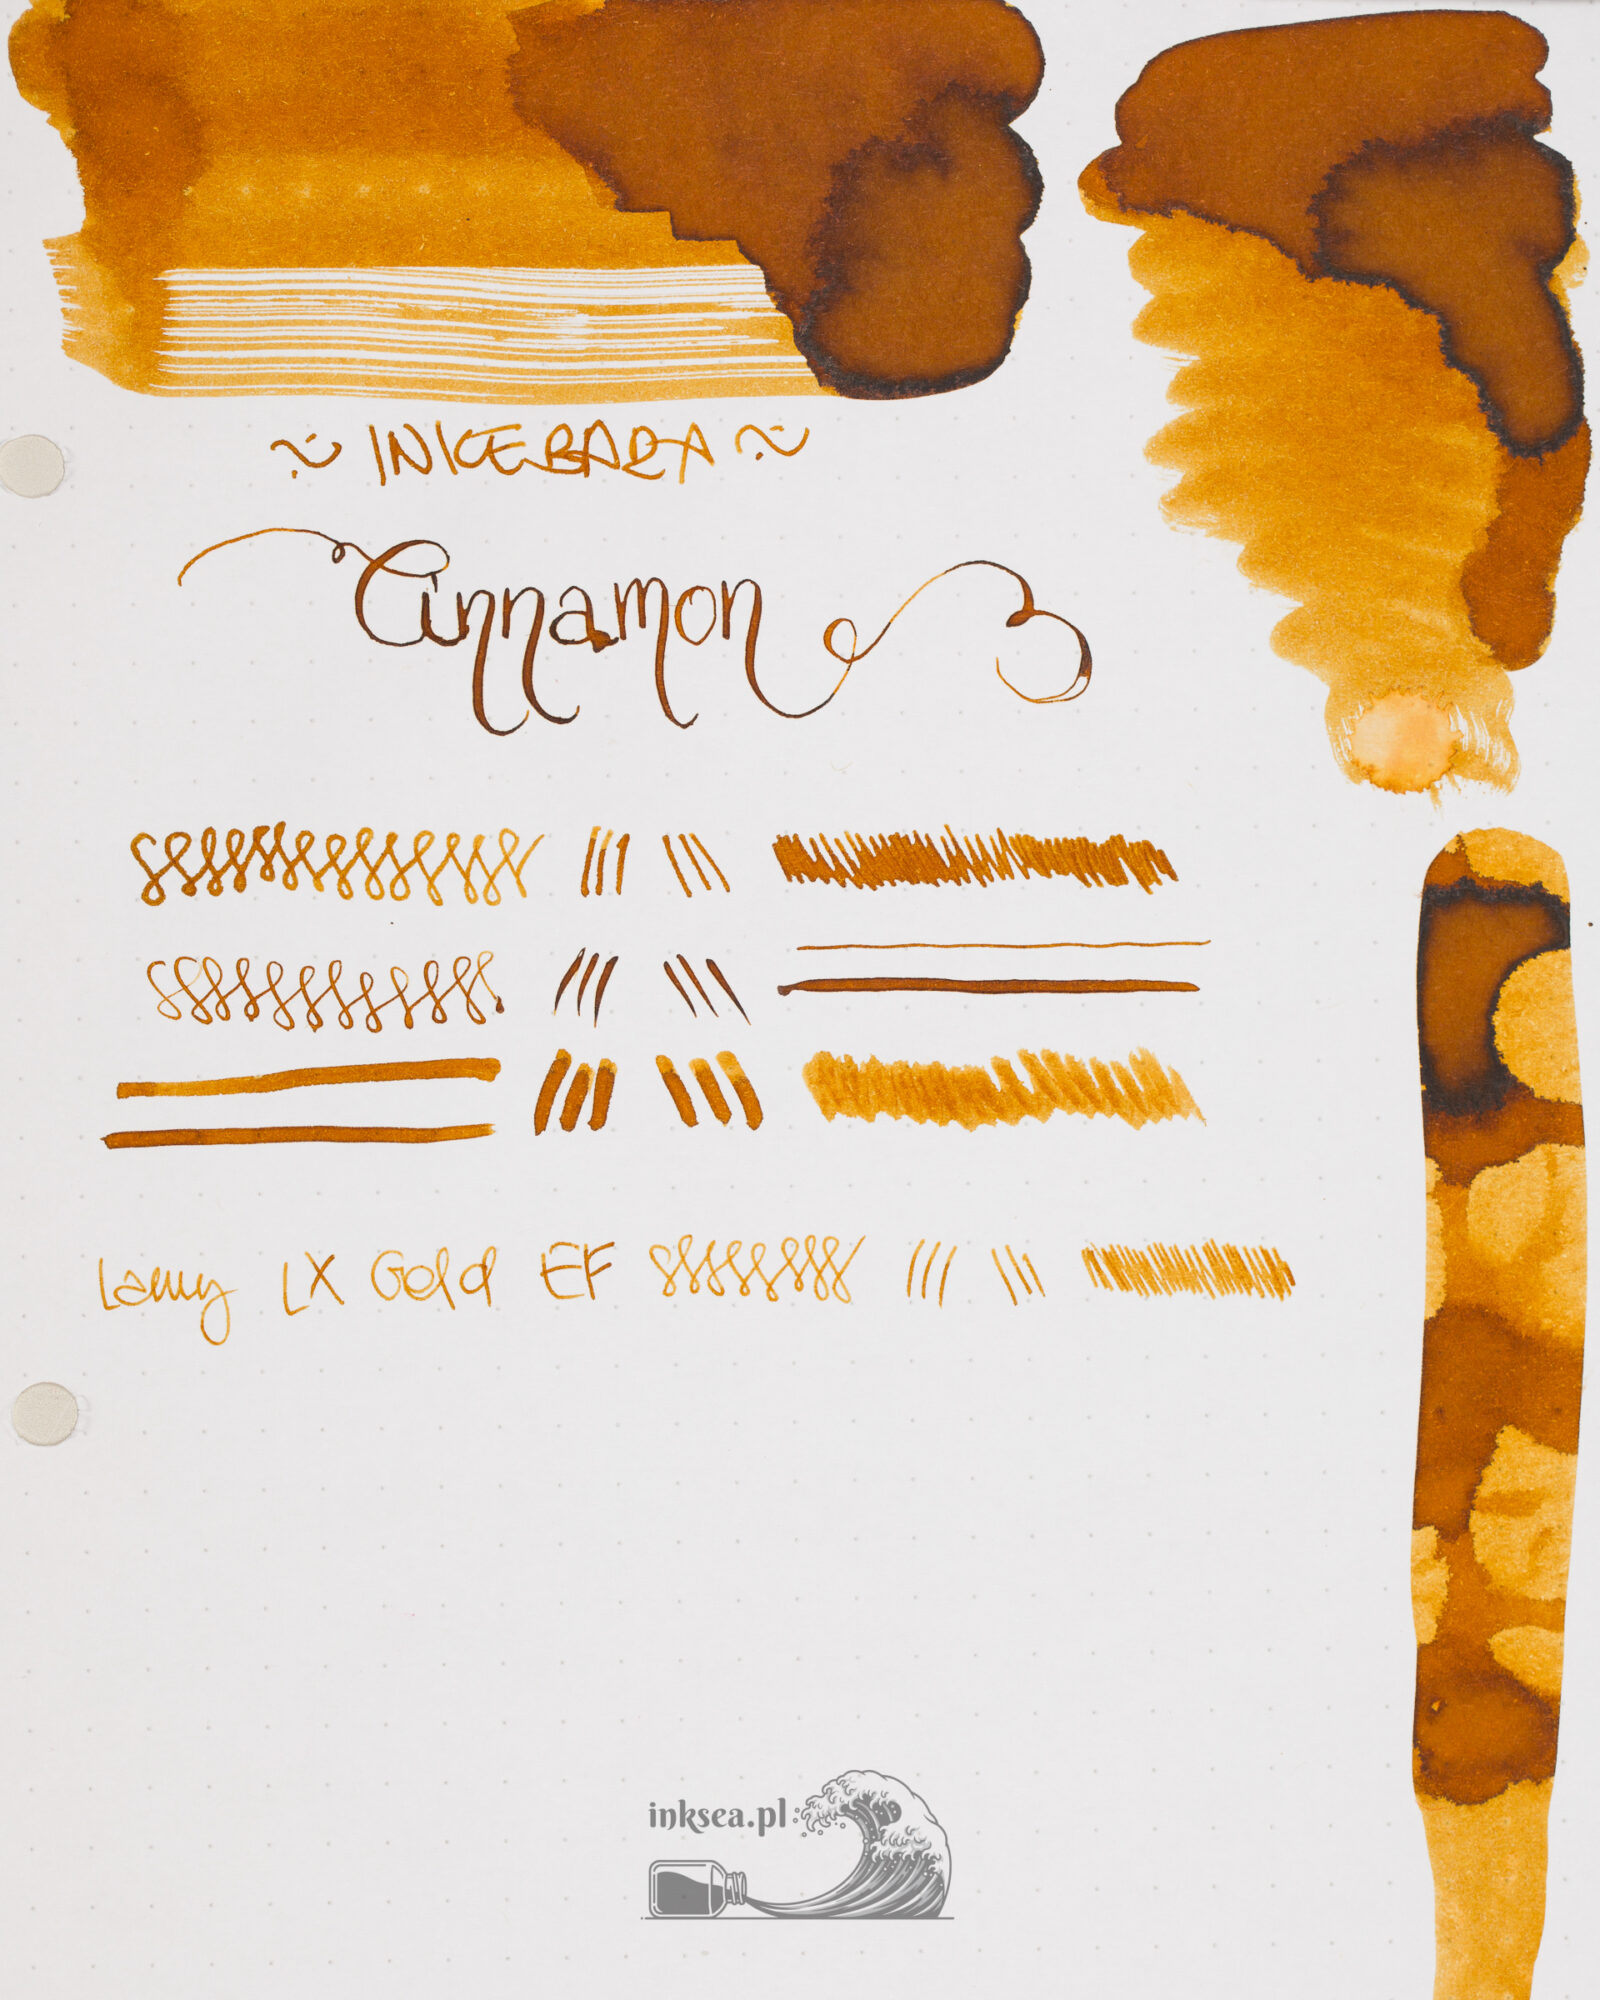 ~ INKEBARA ~
Cinnamon
Lamy LX Gold EF
inksea.pl